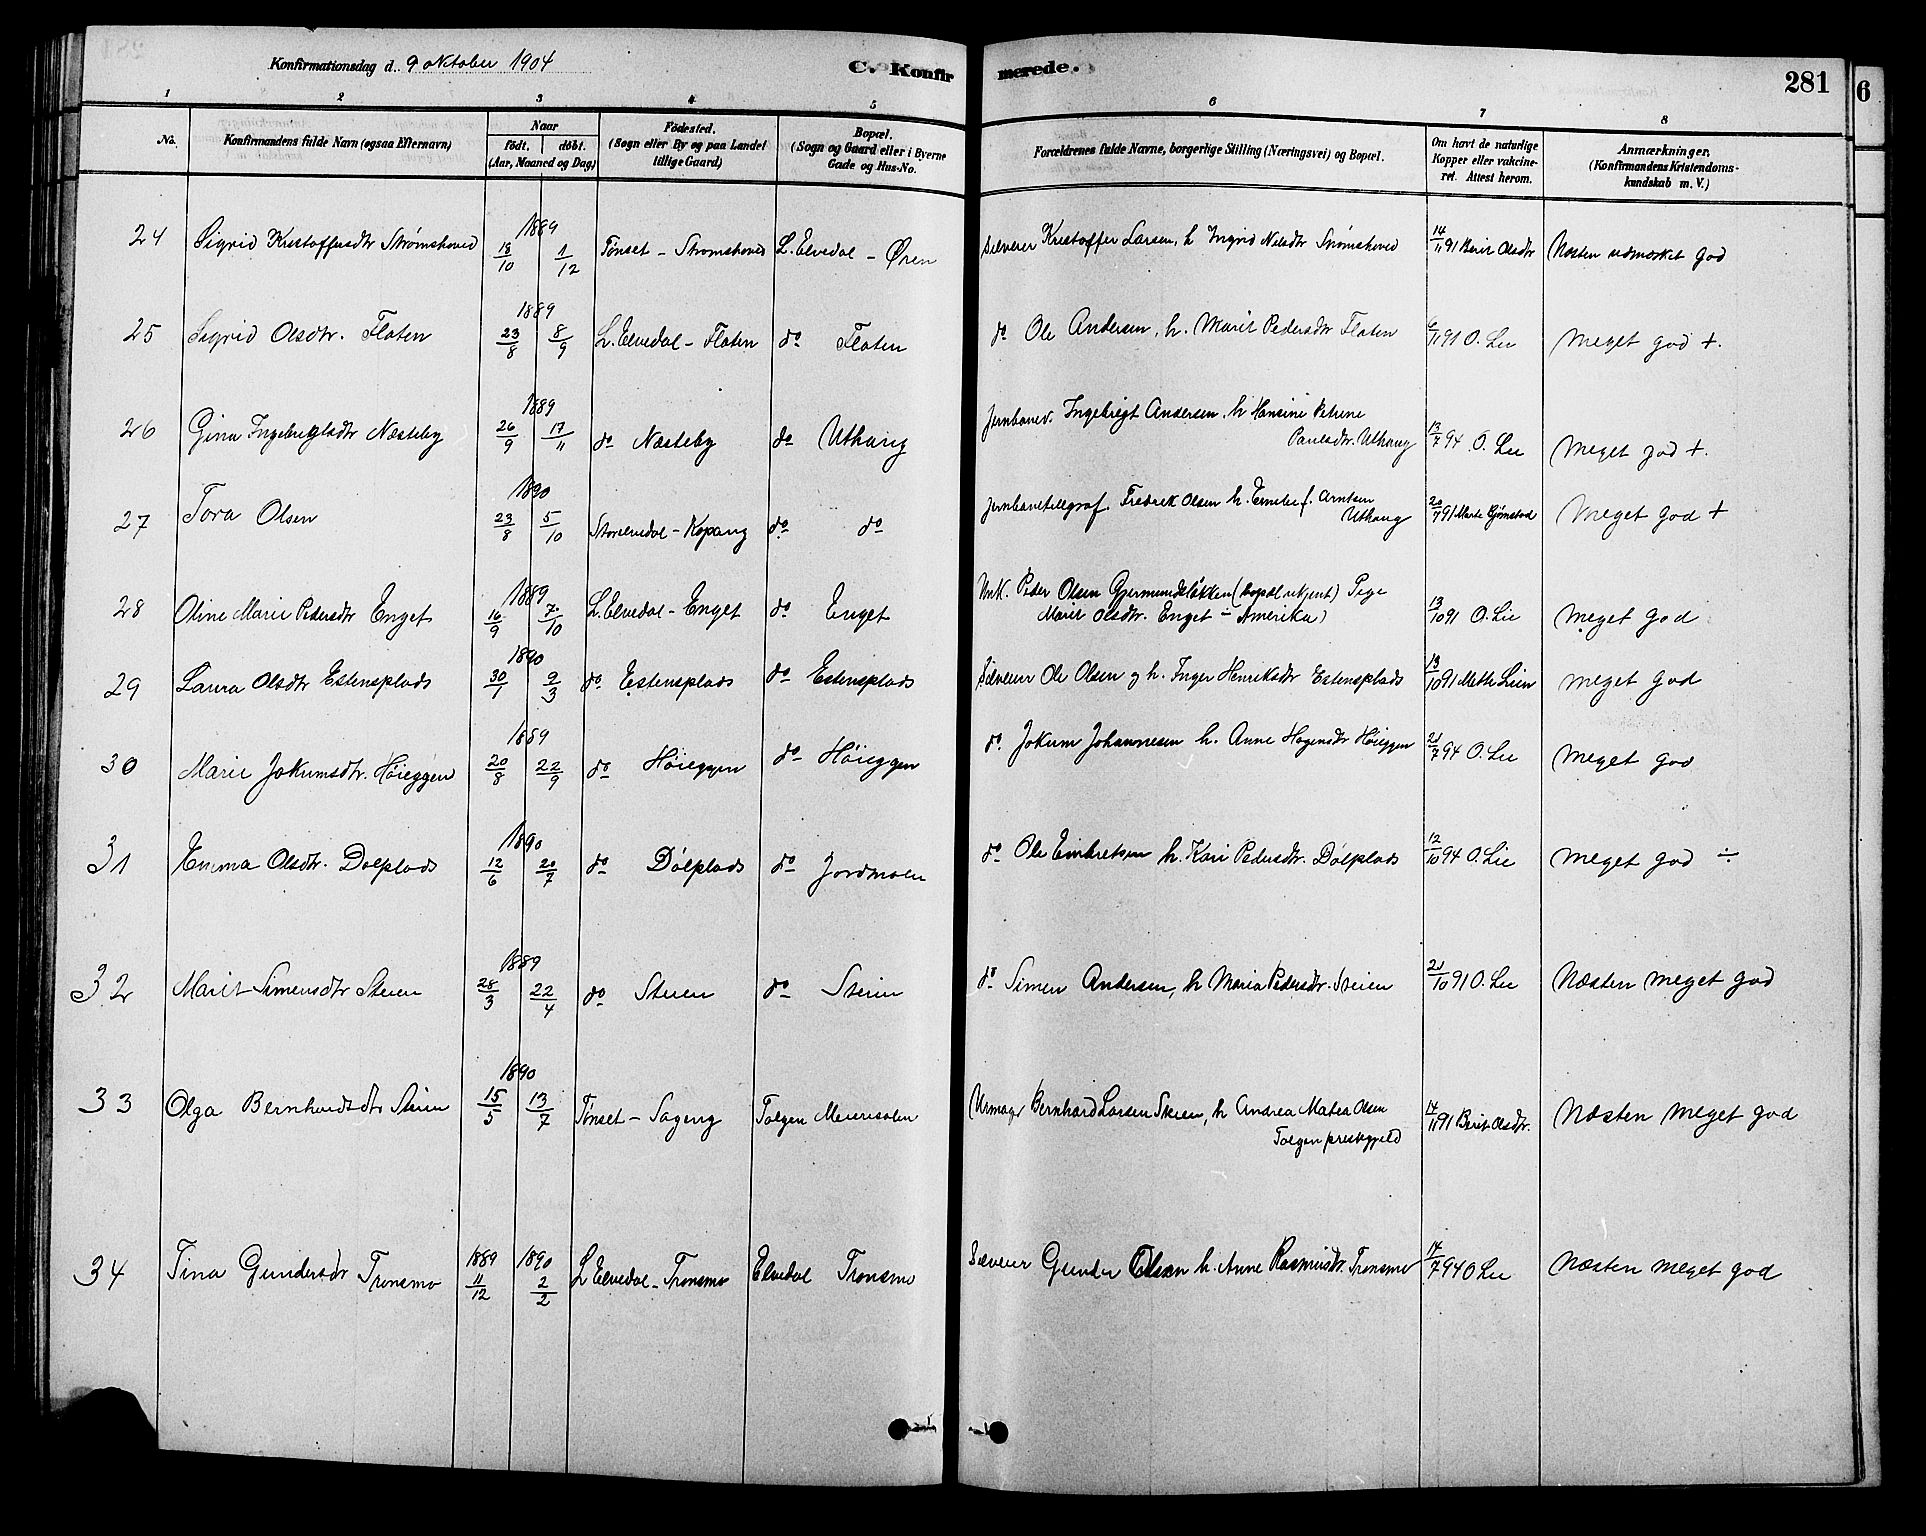 Konfirmationsdag d. 9 oktober 1904
C. Konfirmerede.
281
6
1 2 3 4 5 6 7 8
No. Konfirmandens fulde Navn (ogsaa Efternavn) Naar Født. døbt. (Aar, Maaned og Dag) Fødested. (Sogn eller By og paa Landet tillige Gaard) Bopæl. (Sogn og Gaard eller i Byerne Gade og Hus-No. Forældrenes fulde Navne, borgerlige Stilling (Næringsvei) og Bopæl. Om havt de naturlige Kopper eller vakcineret. Attest herom. Anmærkninger, (Konfirmandens Kristendomskundskab m. V.)
24 Sigrid Kristoffersdtr Strømshoved 1889 18/10 1/12 Tønset - Strømshoved L. Elvedal - Øren Selveier Kristoffer Larsen, h Ingrid Nilsdtr Strømshoved 14/11 91 Berit Olsdtr Næsten udmærket god
25 Sigrid Olsdtr. Floten 1889 23/8 8/9 L. Elvedal - Floten do Floten do Ole Andersen, h. Marit Pedersdtr Floten 6/11 91 O. Lie Meget god +.
26 Gina Ingebrigtsdtr Næsteby 1889 26/9 17/11 do Næsteby do Uthaug Jernbanev. Ingebrigt Andersen, h Hansine Petrine
Paulsdtr. Uthaug 13/7 94 O. Lie Meget god +.
27 Tora Olsen 1890 23/8 5/10 Storelvedal - Kopang do do Jernbanetelegraf. Fredrek Olsen h. Emelie f. Arntsen
Uthaug 20/7 91 Marte Gjømstad Meget god +
28 Oline Marie Pedersdtr Enget 1889 16/9 7/10 L. Elvedal - Enget do Enget Unk. Peder Olsen Gjermundsløkken (bopæl ukjent) Pige
Marit Olsdtr. Enget ÷ Amerika) 13/10 91 O. Lie Meget god
29 Laura Olsdtr Estensplads 1890 30/1 9/3 do Estensplads do Estensplads Selveier Ole Olsen og h. Inger Henriksdtr Estensplads 13/10 91 Mette Lien Meget god
30 Marie Jokumsdtr. Høieggen 1889 20/8 22/9 do Høieggen do Høieggen do. Jokum Johannesen h. Anne Hagensdtr Høieggen 21/7 94 O. Lie Meget god
31 Emma Olsdtr. Dølplads 1890 12/6 20/7 do Dølplads do Jordmoen do Ole Embretsen h. Kari Pedersdtr. Dølplads 12/10 94 O. Lie Meget god ÷
32 Marit Simensdtr Steien 1889 28/3 22/4 do Steien do Steien do Simen Andersen, h Maria Pedersdtr. Steien 21/10 91 O. Lie Næsten meget god
33 Olga Bernhardsdtr Steien 1890 15/5 13/7 Tønset - Sageng Tolgen Meierisolen Urmager Bernhard Larsen Steien, h Andrea Matea Olsen
Tolgen prestegjeld 14/11 91 Berit Olsdtr. Næsten meget god
34 Tina Gundersdtr Tronsmo 1889 11/12 1890 2/2 L Elvedal - Tronsmo Elvedal Tronsmo Selveier Gunder Olsen h. Anne Rasmusdtr. Tronsmo 14/7 94 O Lie Næsten meget god